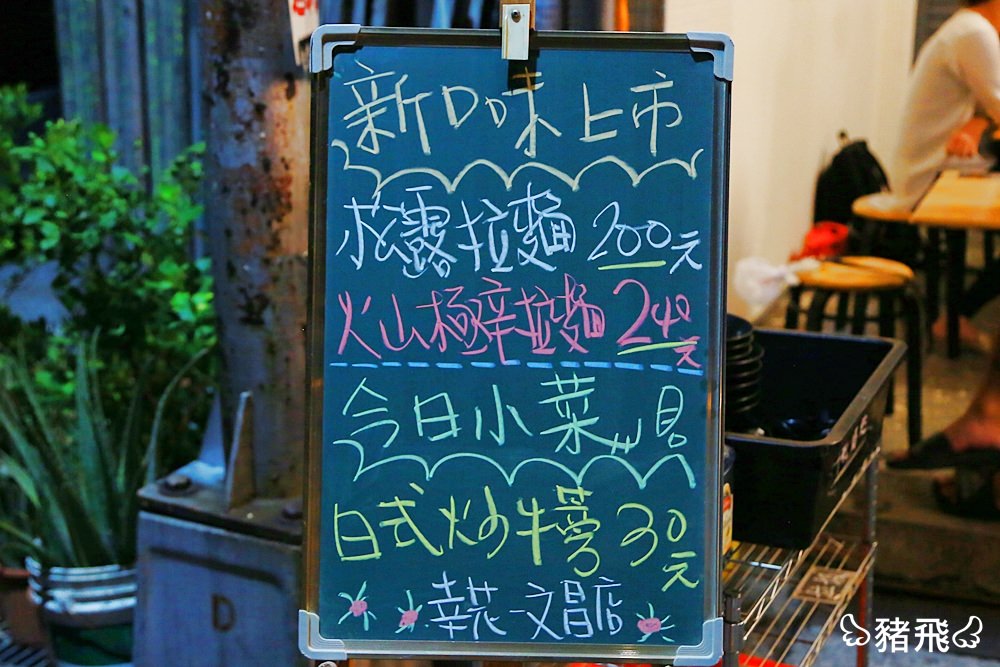 新口味上市
松露拉麵 200元
火山極辛拉麵 240元
今日小菜
日式炒牛蒡 30元
幸花-文昌店
D
豬飛